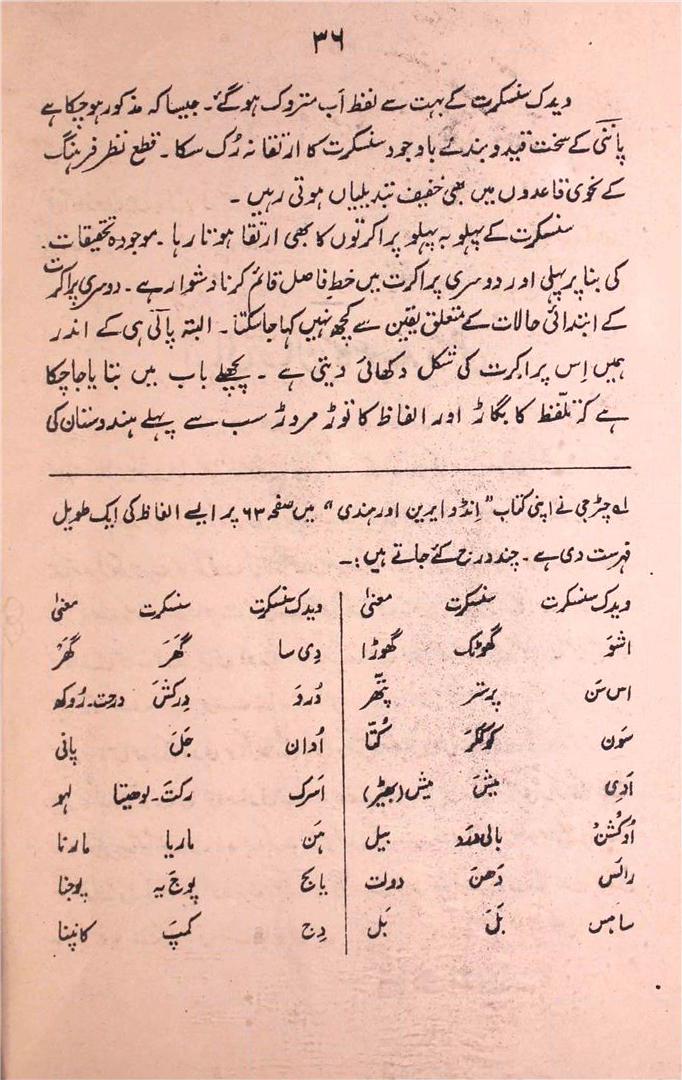 ۳۶
ویدک سنسکرت کے بہت سے لفظ اَب متروک ہوگئے۔ جیسا کہ مذکور ہوچکا ہے
پاننی کے سخت قید و بند کے باوجود سنسکرت کا ارتقا نہ رُک سکا۔ قطع نظر فرہنگ
کے نحوی قاعدوں میں بھی خفیف تبدیلیاں ہوتی رہیں۔
سنسکرت کے پہلو بہ پہلو پراکرتوں کا بھی ارتقا ہوتا رہا۔ موجودہ تحقیقات۔
کی بنا پر پہلی اور دوسری پراکرت میں خطِ فاصل قائم کرنا دشوار ہے۔ دوسری پراکرت
کے ابتدائی حالات کے متعلق یقین سے کچھ نہیں کہا جاسکتا۔ البتہ پالی ہی کے اندر
ہمیں اِس پراکرت کی شکل دکھائی دیتی ہے۔ پچھلے باب میں بتایا جاچکا
ہے کہ تلفّظ کا بگاڑ اور الفاظ کا توڑ مروڑ سب سے پہلے ہندوستان کی
لہ چٹرجی نے اپنی کتاب "اِنڈو ایرین اور ہندی" میں صفحہ ۶۳ پر ایسے الفاظ کی ایک طویل
فہرست دی ہے۔ چند درج کئے جاتے ہیں:۔
ویدک سنسکرت سنسکرت معنیٰ ویدک سنسکرت سنسکرت معنیٰ
اشوَ گھوٹک گھوڑا دِی سا گھَرَ گھَر
اس سَن پرستر پتّھر دُردَ دِرکشَ درخت۔رُوکھ
سَون کوکّرَ کُتّا اُدان جَلَ پانی
اَدِی میشَ میش (بھیڑ) اَسرک رکتَ۔لوھیتا لہو
اُوکشنْ بیل ہَن ماریا مارنا
رائس دَھنَ دولت یاجج پوجَ یہ پوجنا
ساہس بَلَ بَل دِج کمپَ کانپنا